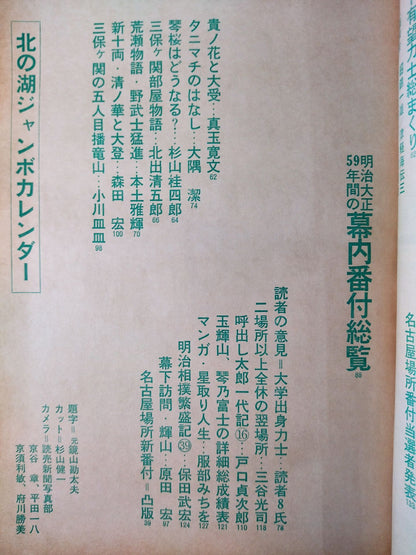 名古屋場所新番付当選者発表
明治大正
59年間の幕内番付総覧 89
読者の意見＝大学出身力士…読者8氏 78
二場所以上全休の翌場所…三谷光司 118
呼出し太郎一代記⑯…戸口貞次郎 110
玉輝山、琴乃富士の詳細総成績表 121
マンガ・星取り人生…服部みちを 127
明治相撲繁盛記㊴…保田武宏 124
幕下訪問・輝山…原田 宏 97
名古屋場所新番付＝凸版 39
題字＝元鏡山勘太夫
カット＝杉山健一
カメラ＝読売新聞写真部
京谷 章、平田一八
京須利敏、府川勝美
貴ノ花と大受…真玉寛文 62
タニマチのはなし…大隅 潔 74
琴桜はどうなる?…杉山桂四郎 64
三保ヶ関部屋物語…北出清五郎 66
荒瀬物語・野武士猛進…本土雅輝 70
新十両・清ノ華と大登…森田 宏 100
三保ヶ関の五人目播竜山…小川皿皿 98
北の湖ジャンボカレンダー